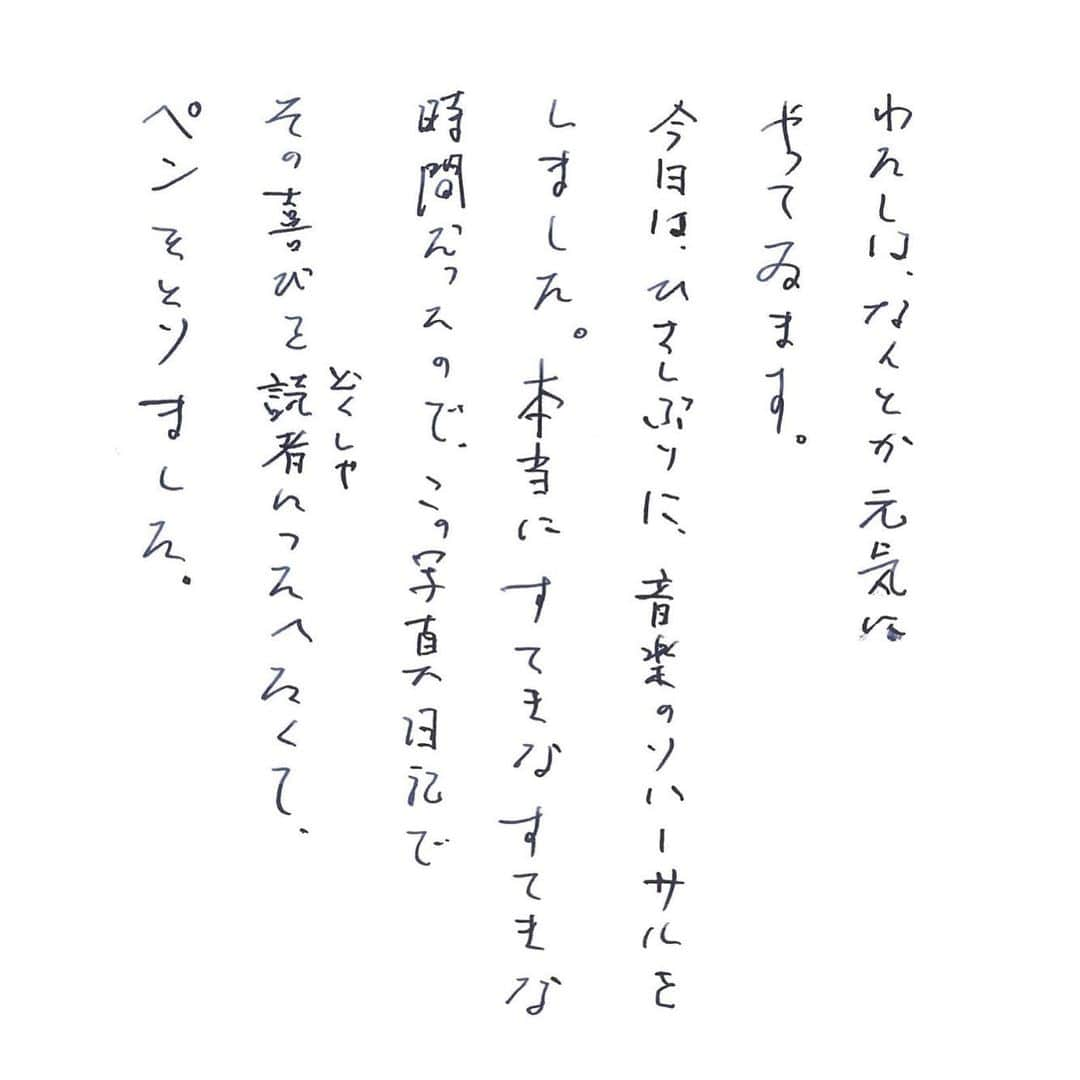 わたしは、なんとか元気に
やってゐます。
今日は、ひさしぶりに、音楽のリハーサルを
しました。本当にすてきなすてきな
時間だったので、この写真日記で
その喜びを読者につたへたくて、
どくしゃ
ペンをとりました。